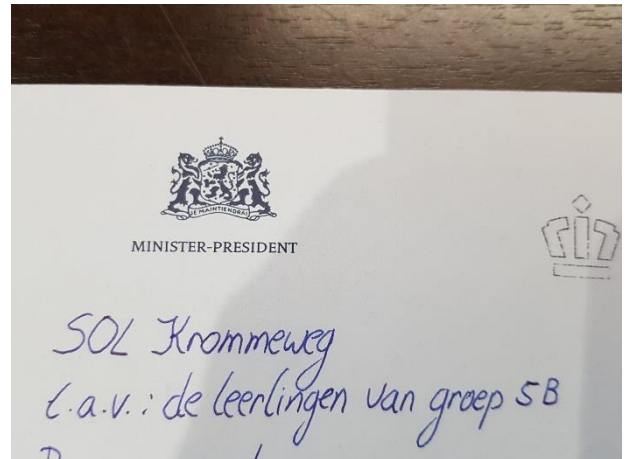 JE MAINTIENDRAI
MINISTER-PRESIDENT
SOL Krommeweg
t.a.v.: de leerlingen van groep 5B